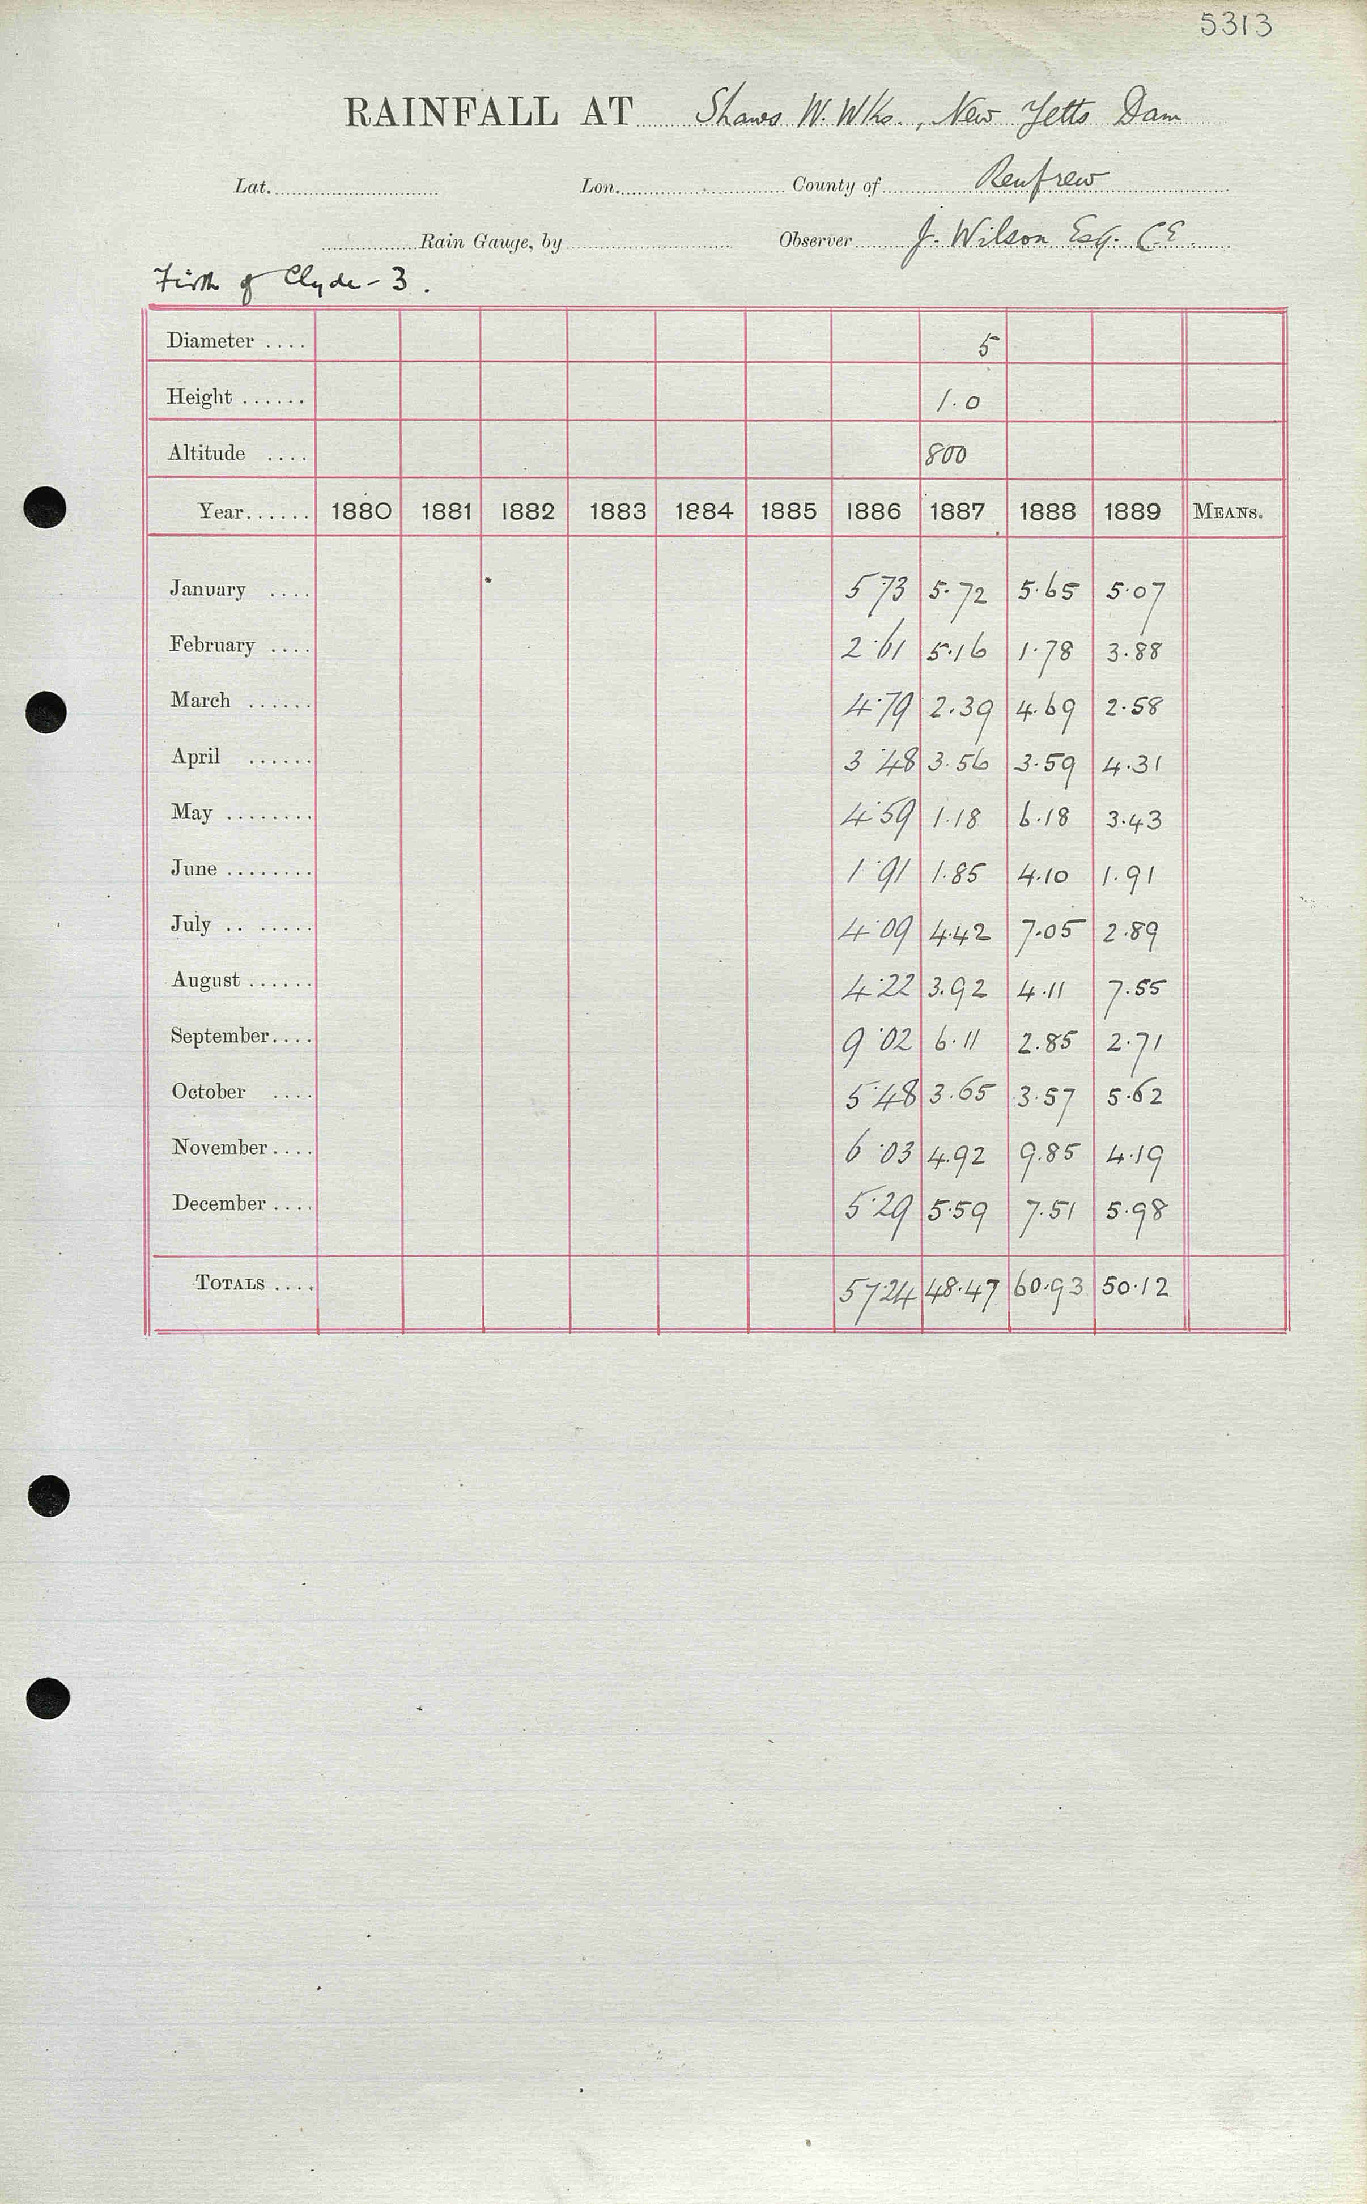 5313
RAINFALL AT Shaws W. Wks., New Yetts Dam
Lat. Lon. County of Renfrew
Rain Gauge, by Observer J. Wilson Esq. C.E.
Firth of Clyde - 3.
Diameter .... 5
Height ...... 1.0
Altitude .... 800
Year...... 1880 1881 1882 1883 1884 1885 1886 1887 1888 1889 MEANS.
January .... 5.73 5.72 5.65 5.07
February .... 2.61 5.16 1.78 3.88
March ...... 4.79 2.39 4.69 2.58
April ...... 3.48 3.56 3.59 4.31
May ........ 4.59 1.18 6.18 3.43
June ........ 1.91 1.85 4.10 1.91
July .. ..... 4.09 4.42 7.05 2.89
August ...... 4.22 3.92 4.11 7.55
September.... 9.02 6.11 2.85 2.71
October .... 5.48 3.65 3.57 5.62
November.... 6.03 4.92 9.85 4.19
December .... 5.29 5.59 7.51 5.98
TOTALS .... 57.24 48.47 60.93 50.12